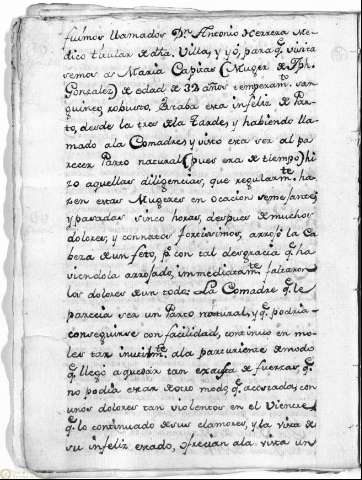 fuimos llamados Dn. Antonio Herrera Me-
dico titular de dha. Villa, y yó, para q.e visita
semos a Maria Capitas (Muger de Jph.
Gonzalez) de edad de 32 años temperam.to san-
guineo robusto. Estaba esta infeliz de Par-
to, desde la tres de la tarde, y habiendo lla-
mado ala Comadre, y visto esta ser al pa
recer Parto natural (pues era de tiempo) hi
zo aquellas diligencias, que regularm.te ha-
zen estas Mugeres en ocacion semejante;
y pasadas sinco horas, despues de muchos
dolores, y connatos fortissimos, arrojó la Ca
beza de un feto, p.o con tal desgracia q.e ha
viendola arrojado, immediatam.te faltaron
los dolores de un todo: La Comadre q.e le
parecia ser un Parto natural, y q.e podria
conseguirse con facilidad, continuó en mo-
les tar inutilm.te ala parturiente de modo
q.e llegó a quedar tan exausta de fuerzas, q.e
no podia estar de otro modo q.e acostada; con
unos dolores tan violentos en el Vientre
q.e lo continuado de sus clamores, y la vista de
su infeliz estado, ofrecian ala vista un